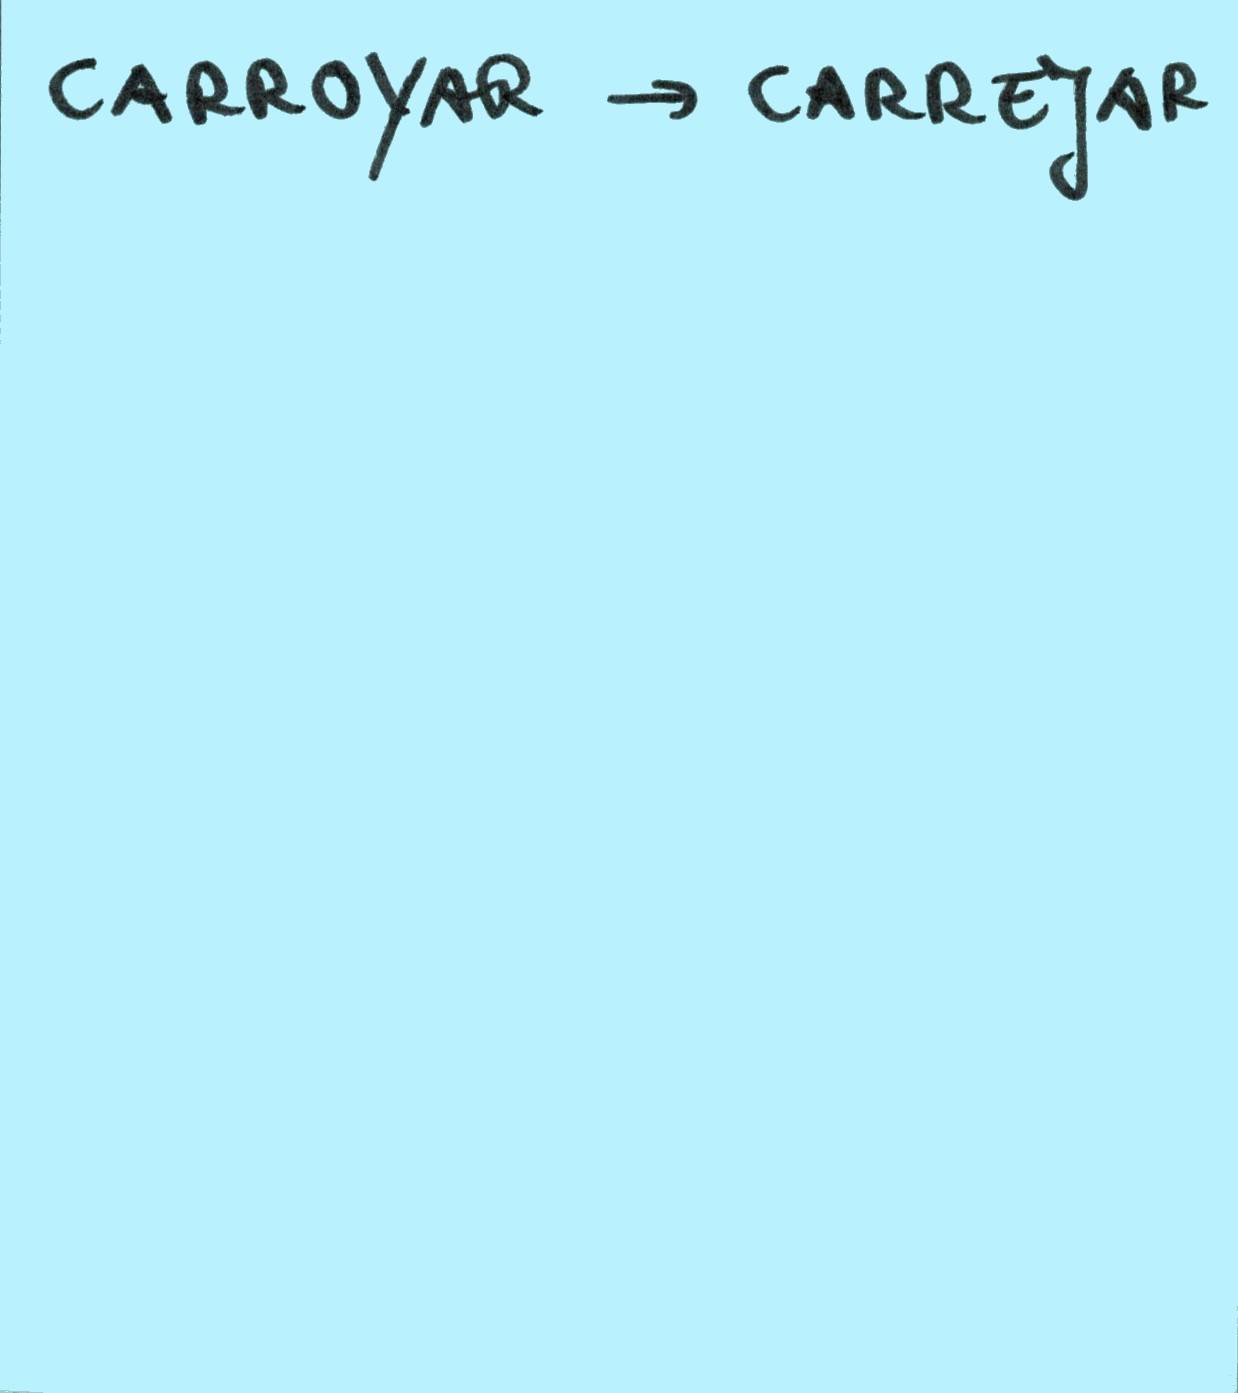 CARROYAR → CARREJAR